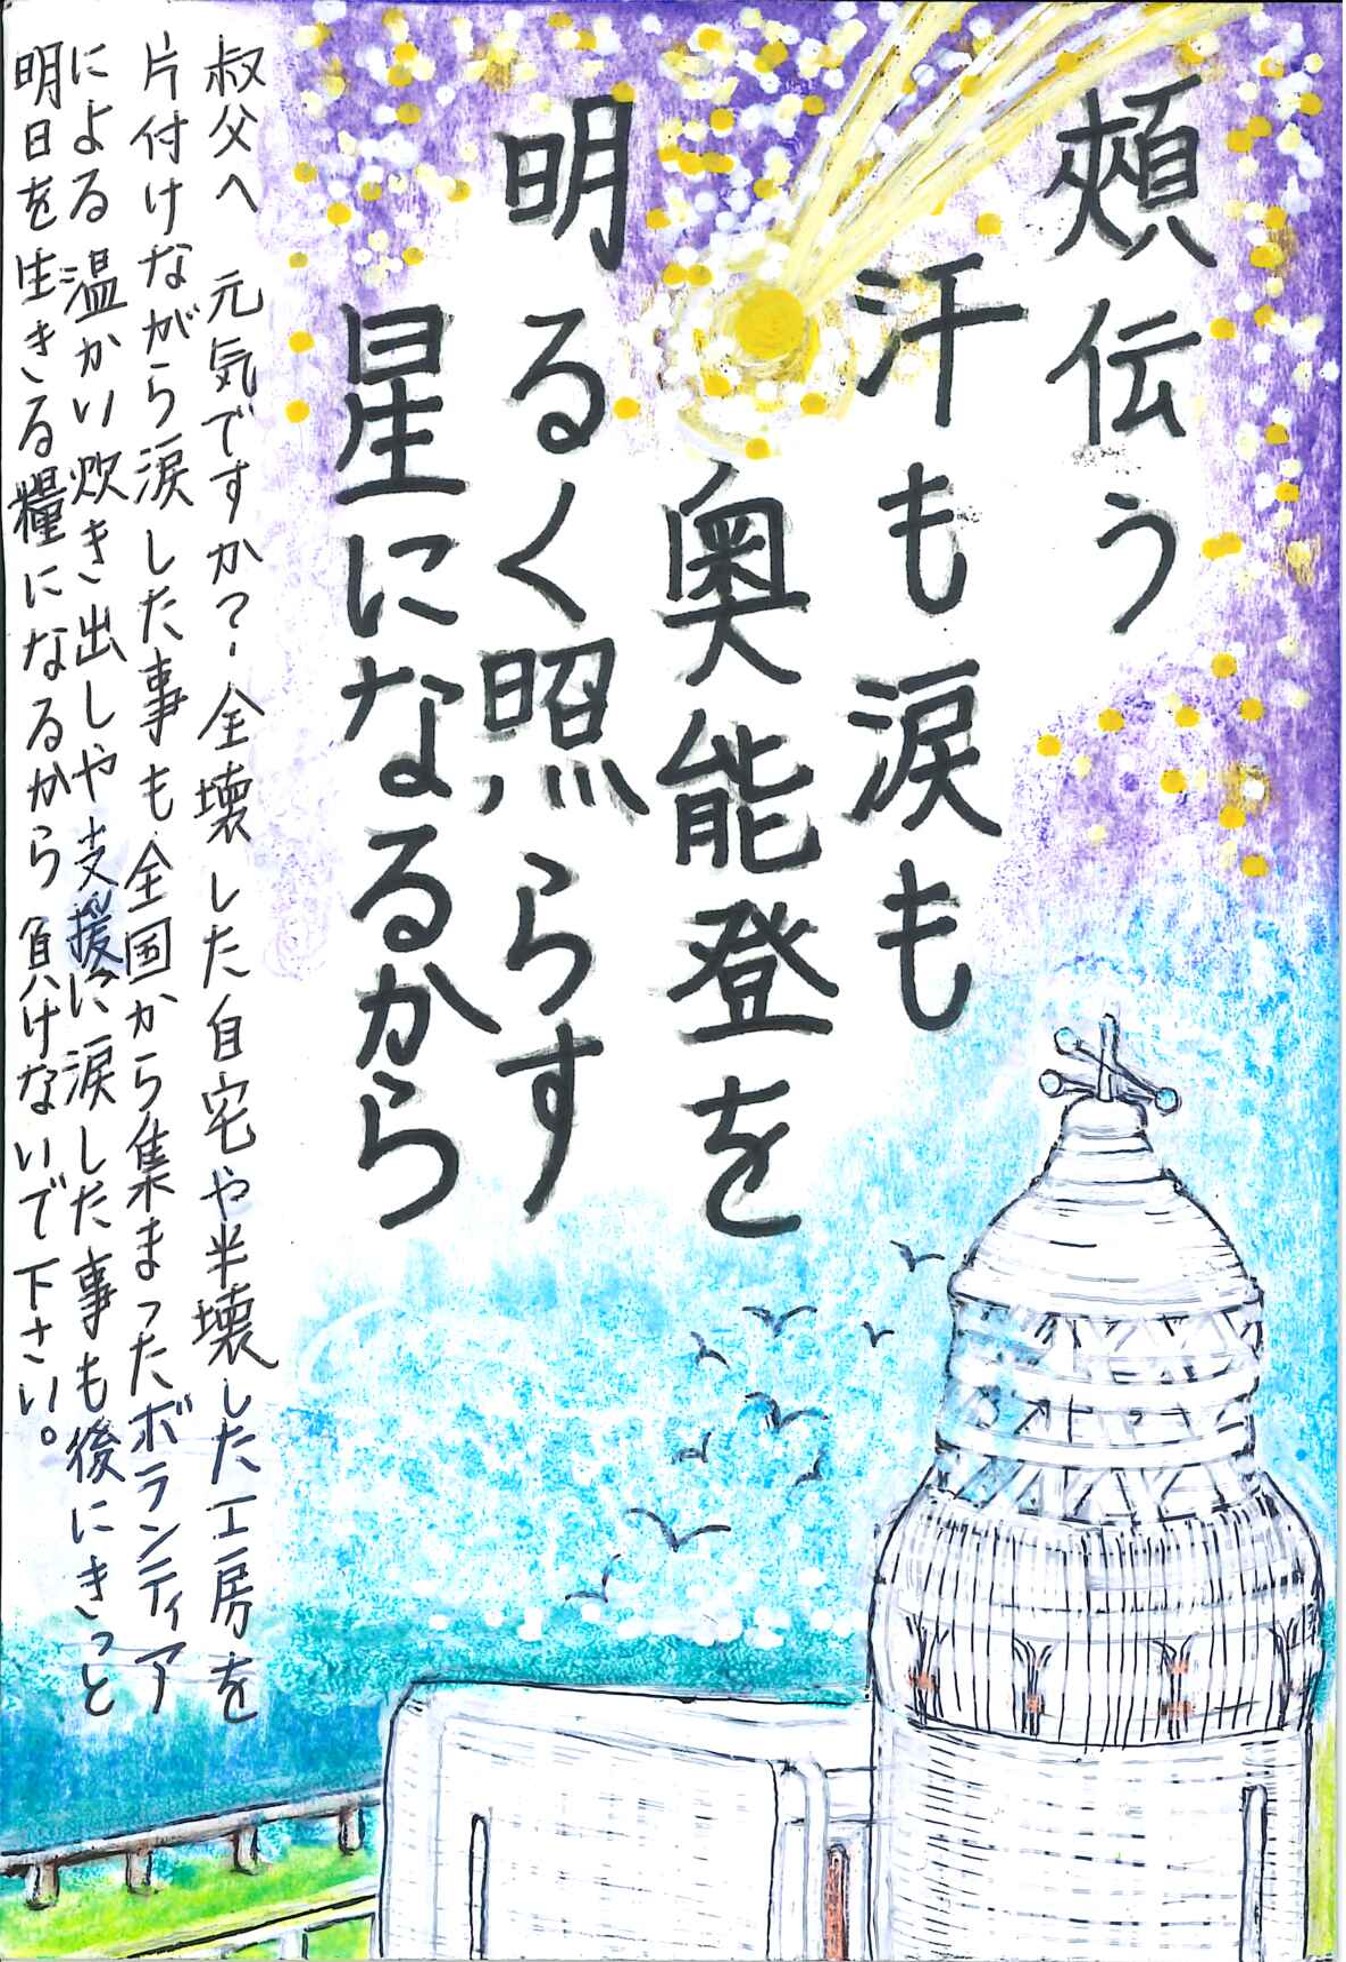 頬伝う
汗も涙も
奥能登を
明るく照らす
星になるから
叔父へ 元気ですか?全壊した自宅や半壊した工房を
片付けながら涙した事も全国から集まったボランティア
による温かい炊き出しや支援に涙した事も後にきっと
明日を生きる糧になるから負けないで下さい。